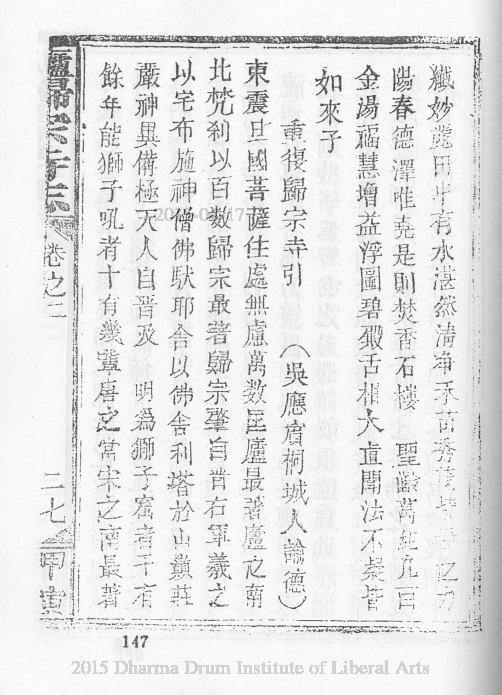 纖妙麗田中有水湛然清淨禾苗秀茂
陽春德澤唯堯是則焚香石樓　聖齡萬紀凡曰
金湯福慧增益浮圖碧毀舌相大直聞法不疑皆
如來子
重復歸宗寺引　（吳應賓桐城人諭德）
東震旦國菩薩住處無慮萬數匡廬最著廬之南
北梵剎以百數歸宗最著歸宗肇自晉右軍羲之
以宅布施神僧佛馱耶舍以佛舍利塔於山巔莊
嚴神異備極天人自晉及　明為獅子窟者千有
餘年能獅子吼者十有幾輩唐之常宋之南最著
廬歸宗寺志
卷之二
二七
147
2015 Dharma Drum Institute of Liberal Arts